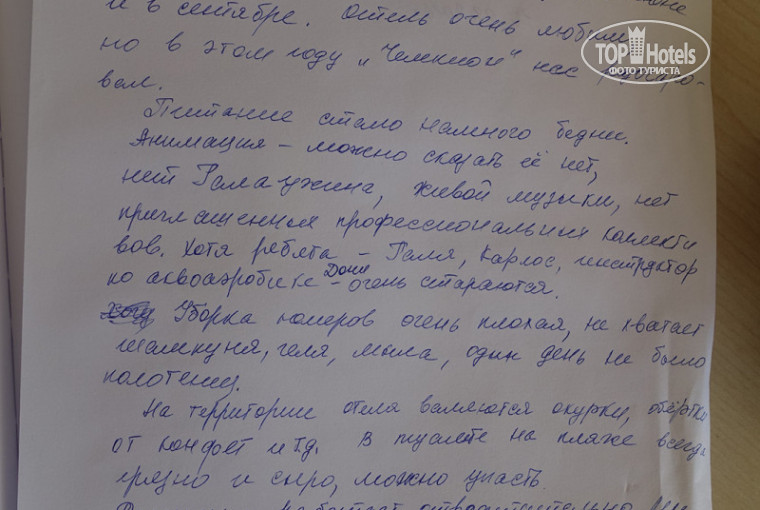 и в сентябре. Отель очень любим,
но в этом году „Чемпион" нас
вал.
TOP Hotels
ФОТО ТУРИСТА
Питание стало намного беднее.
Анимация – можно сказать её нет,
нет Гала ужина, живой музыки, нет
приглашенных профессиональных коллекти
вов. Хотя ребята – Галя, Карлос, инструктор
по аквоаэробике Дони – очень стараются.
Уборка номеров очень плохая, не хватает
шампуня, геля, мыла, один день не было
полотенец.
На территории отеля валяются окурки, обёртки
от конфет и т.д. В туалете на пляже всегда
грязно и сыро, можно упасть.
работает отвратительно